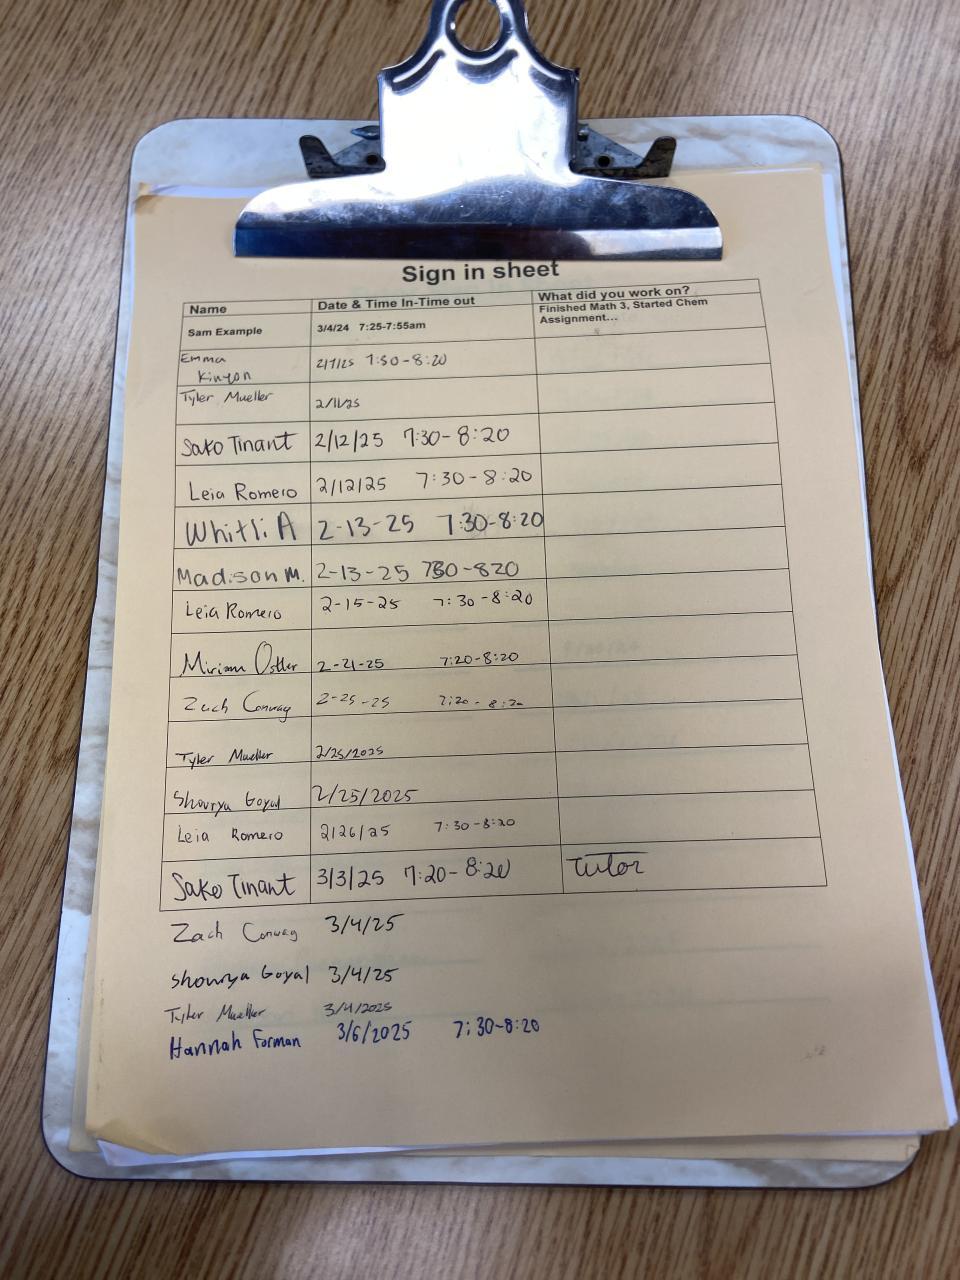 Sign in sheet
Name Date & Time In-Time out What did you work on?
Sam Example 3/4/24 7:25-7:55am Finished Math 3, Started Chem
Assignment...
Emma
Kinyon 2/7/25 7:30-8:20
Tyler Mueller 2/11/25
Sako Tinant 2/12/25 7:30-8:20
Leia Romero 2/12/25 7:30-8:20
Whitli A 2-13-25 7:30-8:20
Madison M. 2-13-25 730-820
Leia Romero 2-15-25 7:30-8:20
Miriam 2-21-25 7:20-8:20
Zach Conway 2-25-25 7:20-8:20
Tyler Mueller 2/25/2025
Shourya Goyal 2/25/2025
Leia Romero 2/26/25 7:30-8:20
Sako Tinant 3/3/25 7:20-8:20 Tutor
Zach Conway 3/4/25
Shourya Goyal 3/4/25
Tyler Mueller 3/4/2025
Hannah Forman 3/6/2025 7:30-8:20